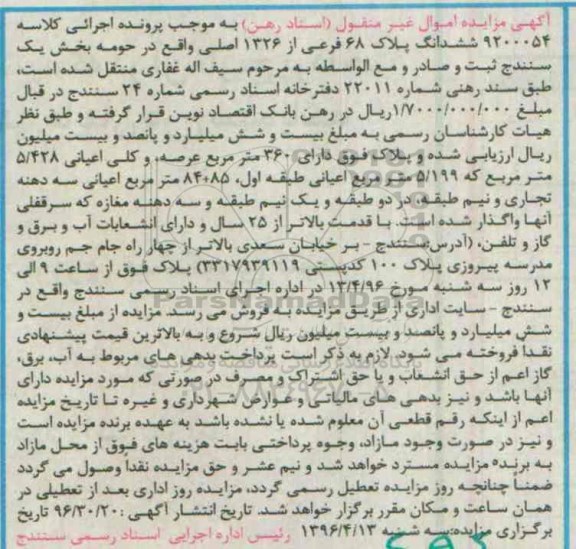 آگهی مزایده اموال غیر منقول (اسناد رهنی) به موجب پرونده اجرائی کلاسه
۹۲۰۰۰۵۴ ششدانگ پلاک ۶۸ فرعی از ۱۳۲۶ اصلی واقع در حومه بخش یک
سنندج ثبت و صادر و مع الواسطه به مرحوم سیف اله غفاری منتقل شده است،
طبق سند رهنی شماره ۲۲۰۱۱ دفترخانه اسناد رسمی شماره ۲۴ سنندج در قبال
مبلغ ۱/۷۰۰۰/۰۰۰/۰۰۰ریال در رهن بانک اقتصاد نوین قرار گرفته و طبق نظر
هیات کارشناسان رسمی به مبلغ بیست و شش میلیارد و پانصد و بیست میلیون
ریال ارزیابی شده و پلاک فوق دارای ۳۶۰ متر مربع عرصه، و کلی اعیانی ۵/۴۲۸
متر مربع که ۵/۱۹۹ متر مربع اعیانی طبقه اول، ۸۴+۸۵ متر مربع اعیانی سه دهنه
تجاری و نیم طبقه، در دو طبقه و یک نیم طبقه و سه دهنه مغازه که سرقفلی
آنها واگذار شده است. با قدمت بالاتر از ۲۵ سال و دارای انشعابات آب و برق و
گاز و تلفن، (آدرس:سنندج - بر خیابان سعدی بالاتر از چهار راه جام جم روبروی
مدرسه پیروزی پلاک ۱۰۰ کدپستی ۳۳۱۷۹۳۹۱۱۹) پلاک فوق از ساعت ۹ الی
۱۲ روز سه شنبه مورخ ۱۳/۴/۹۶ در اداره اجرای اسناد رسمی سنندج واقع در
سنندج - سایت اداری از طریق مزایده به فروش می رسد. مزایده از مبلغ بیست و
شش میلیارد و پانصد و بیست میلیون ریال شروع و به بالاترین قیمت پیشنهادی
نقداً فروخته می شود. لازم به ذکر است پرداخت بدهی های مربوط به آب، برق،
گاز اعم از حق انشعاب و یا حق اشتراک و مصرف در صورتی که مورد مزایده دارای
آنها باشد و نیز بدهی های مالیاتی و عوارض شهرداری و غیره تا تاریخ مزایده
اعم از اینکه رقم قطعی آن معلوم شده یا نشده باشد به عهده برنده مزایده است
و نیز در صورت وجود مازاد، وجوه پرداختی بابت هزینه های فوق از محل مازاد
به برنده مزایده مسترد خواهد شد و نیم عشر و حق مزایده نقداً وصول می گردد
ضمناً چنانچه روز مزایده تعطیل رسمی گردد، مزایده روز اداری بعد از تعطیلی در
همان ساعت و مکان مقرر برگزار خواهد شد. تاریخ انتشار آگهی :۹۶/۳۰/۲۰ تاریخ
برگزاری مزایده:سه شنبه ۱۳۹۶/۴/۱۳ رئیس اداره اجرایی اسناد رسمی سنندج
ParsNamadData